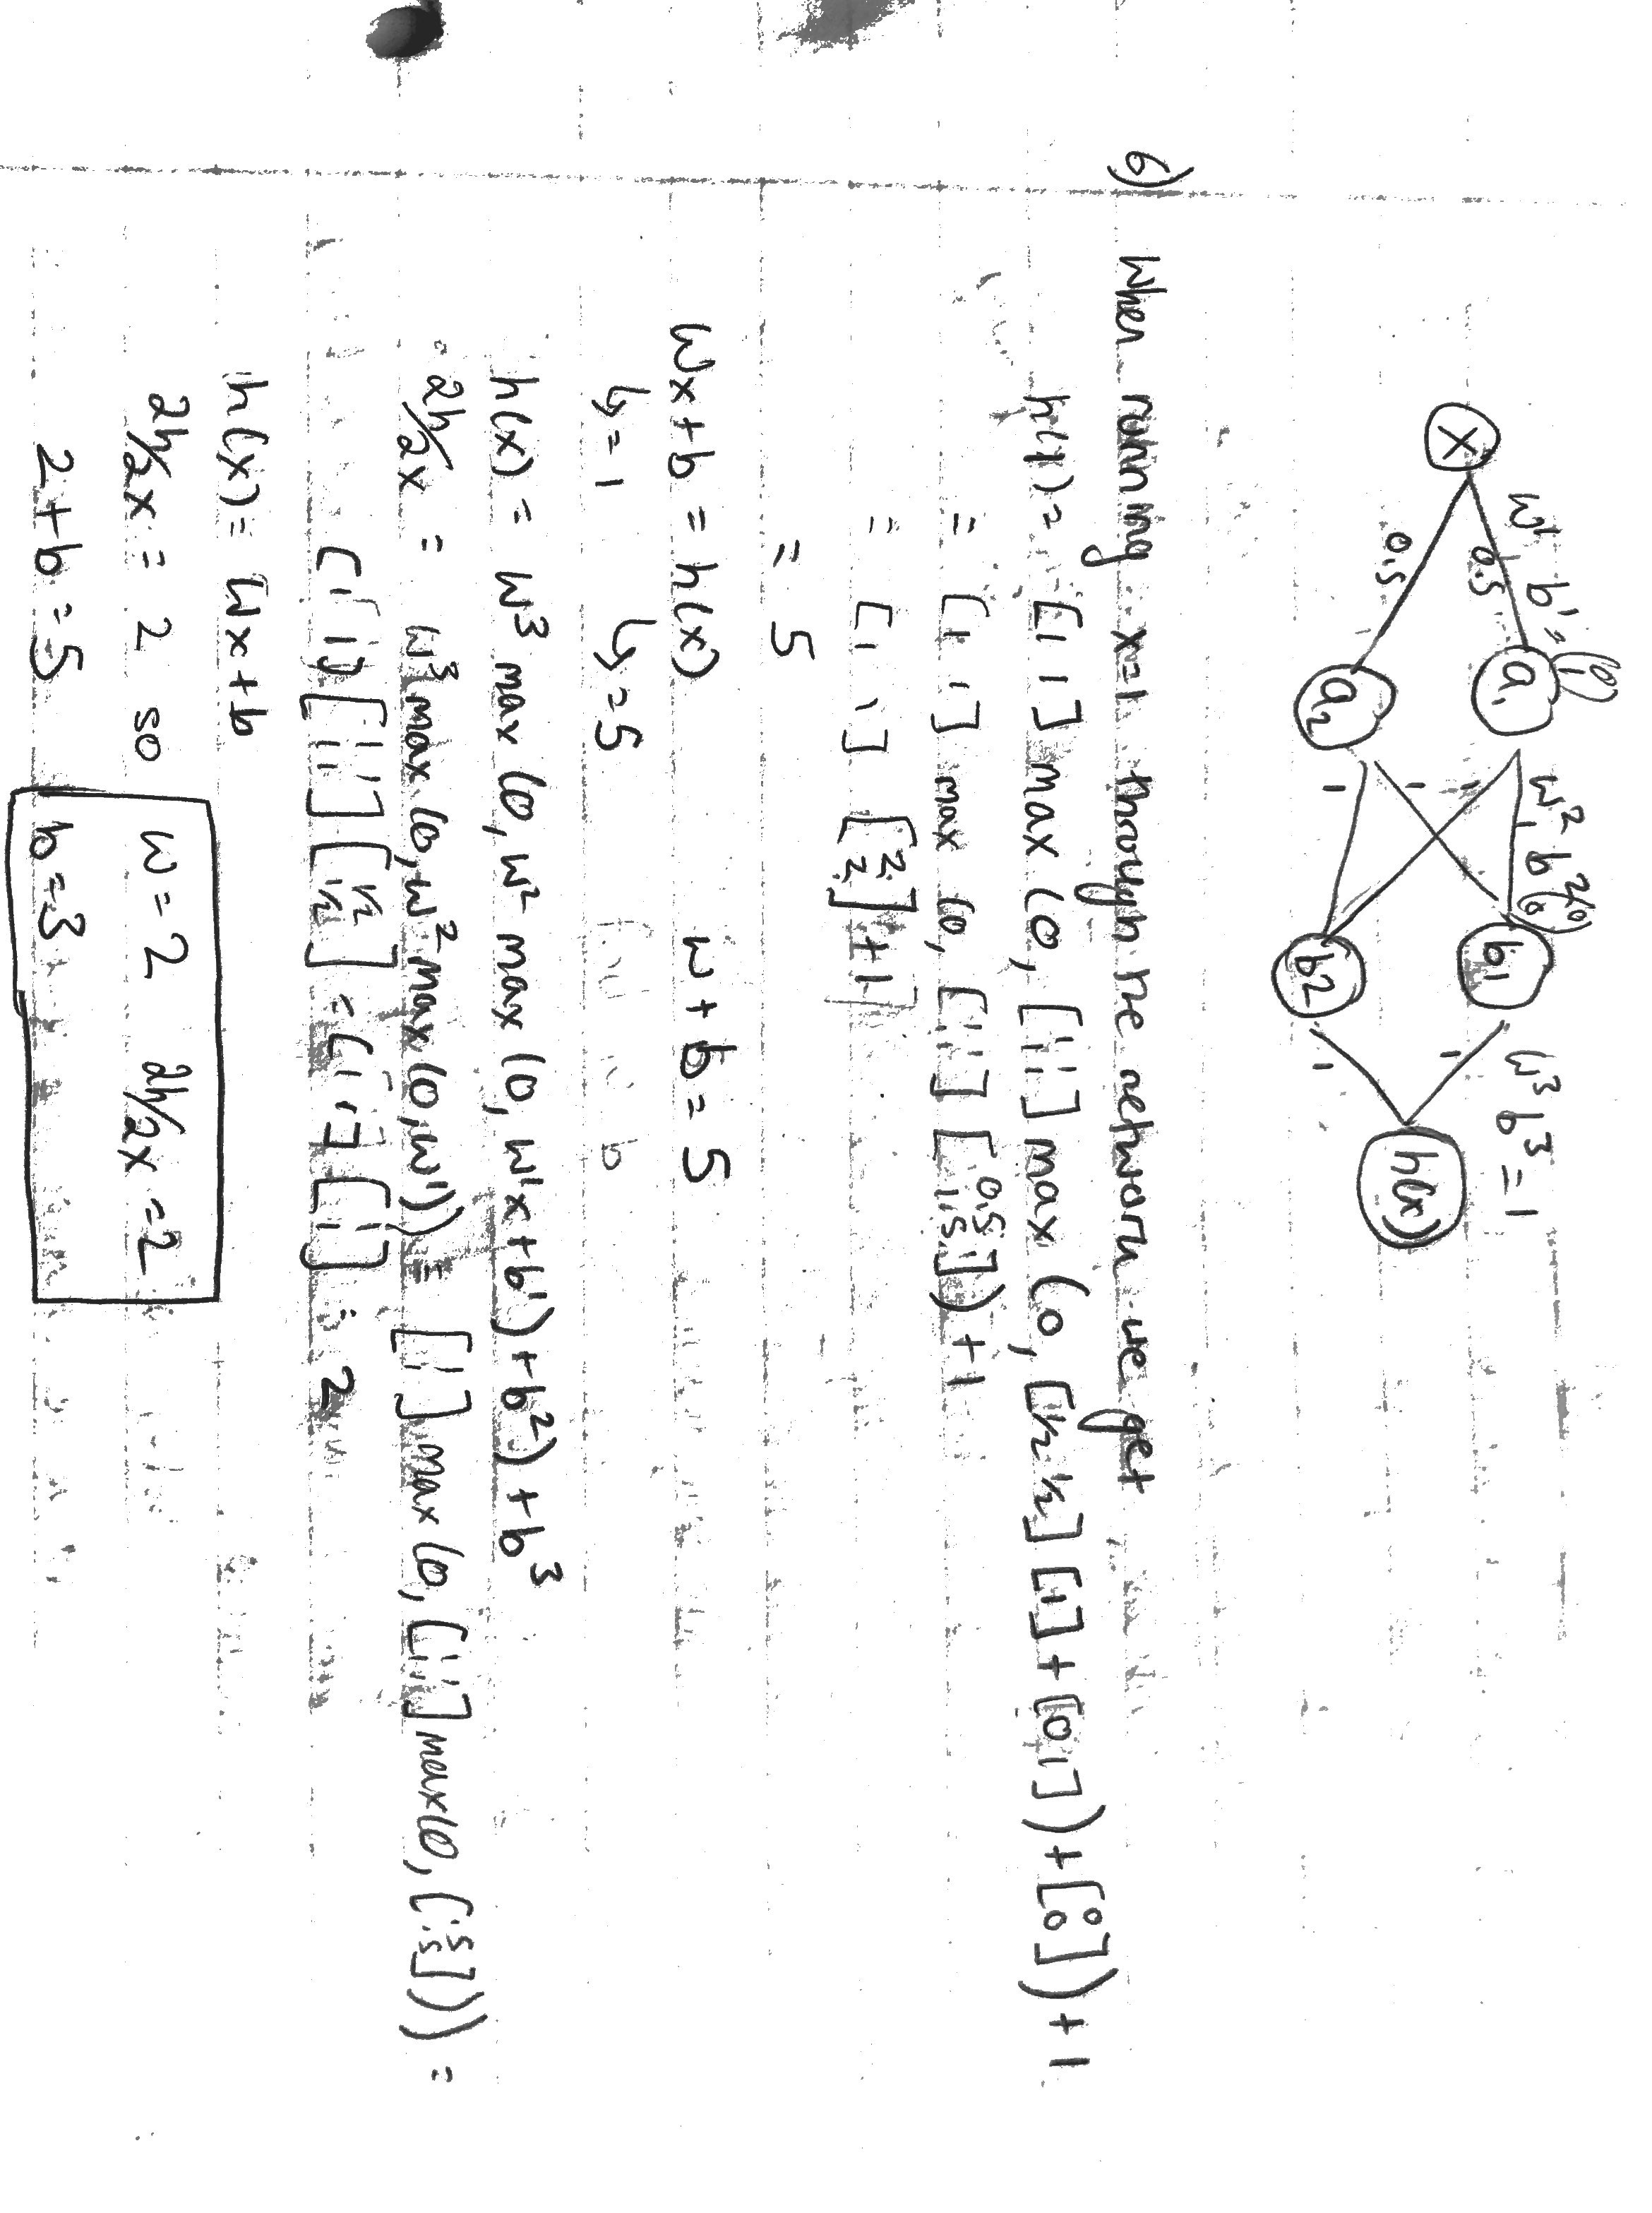 W¹ b¹ = [0 1] W² b² [0 0] W³ b³ = 1
x 0.5 0.5 a₁ a₂ 1 1 1 1 b₁ b₂ 1 1 h(x)
6) When running x=1 through the network we get
h(1) = [1 1] max (0, [1 1 1 1] max (0, [½ ½] [1] + [0 1]) + [0 0]) + 1
= [1 1] max (0, [1 1 1 1] [0.5 1.5]) + 1
= [1 1] [2 2] + 1
= 5
Wx + b = h(x) W + b = 5
↳ = 1 ↳ = 5
h(x) = W³ max (0, W² max (0, W¹x + b¹) + b²) + b³
∂h/∂x = W³ max (0, W² max (0, W¹)) = [1 1] max (0, [1 1 1 1] max (0, [.5 .5])) =
[1 1] [1 1 1 1] [½ ½] = [1 1] [1 1] = 2
h(x) = Wx + b
∂h/∂x = 2 so W = 2 ∂h/∂x = 2
2 + b = 5 b = 3